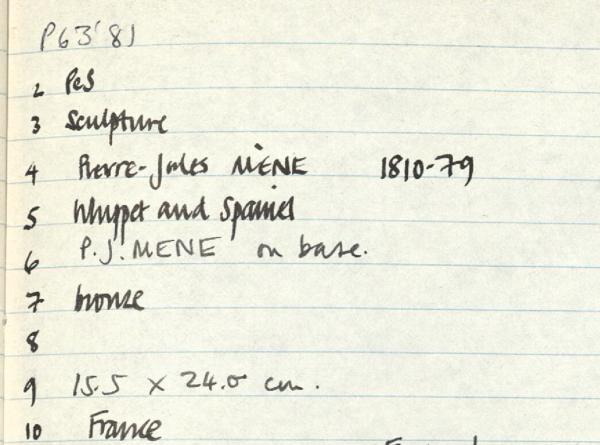 P63'81
2 PeS
3 Sculpture
4 Pierre-Jules MÈNE 1810-79
5 Whippet and Spaniel
6 P.J. MENE on base.
7 bronze
8
9 15.5 x 24.0 cm.
10 France